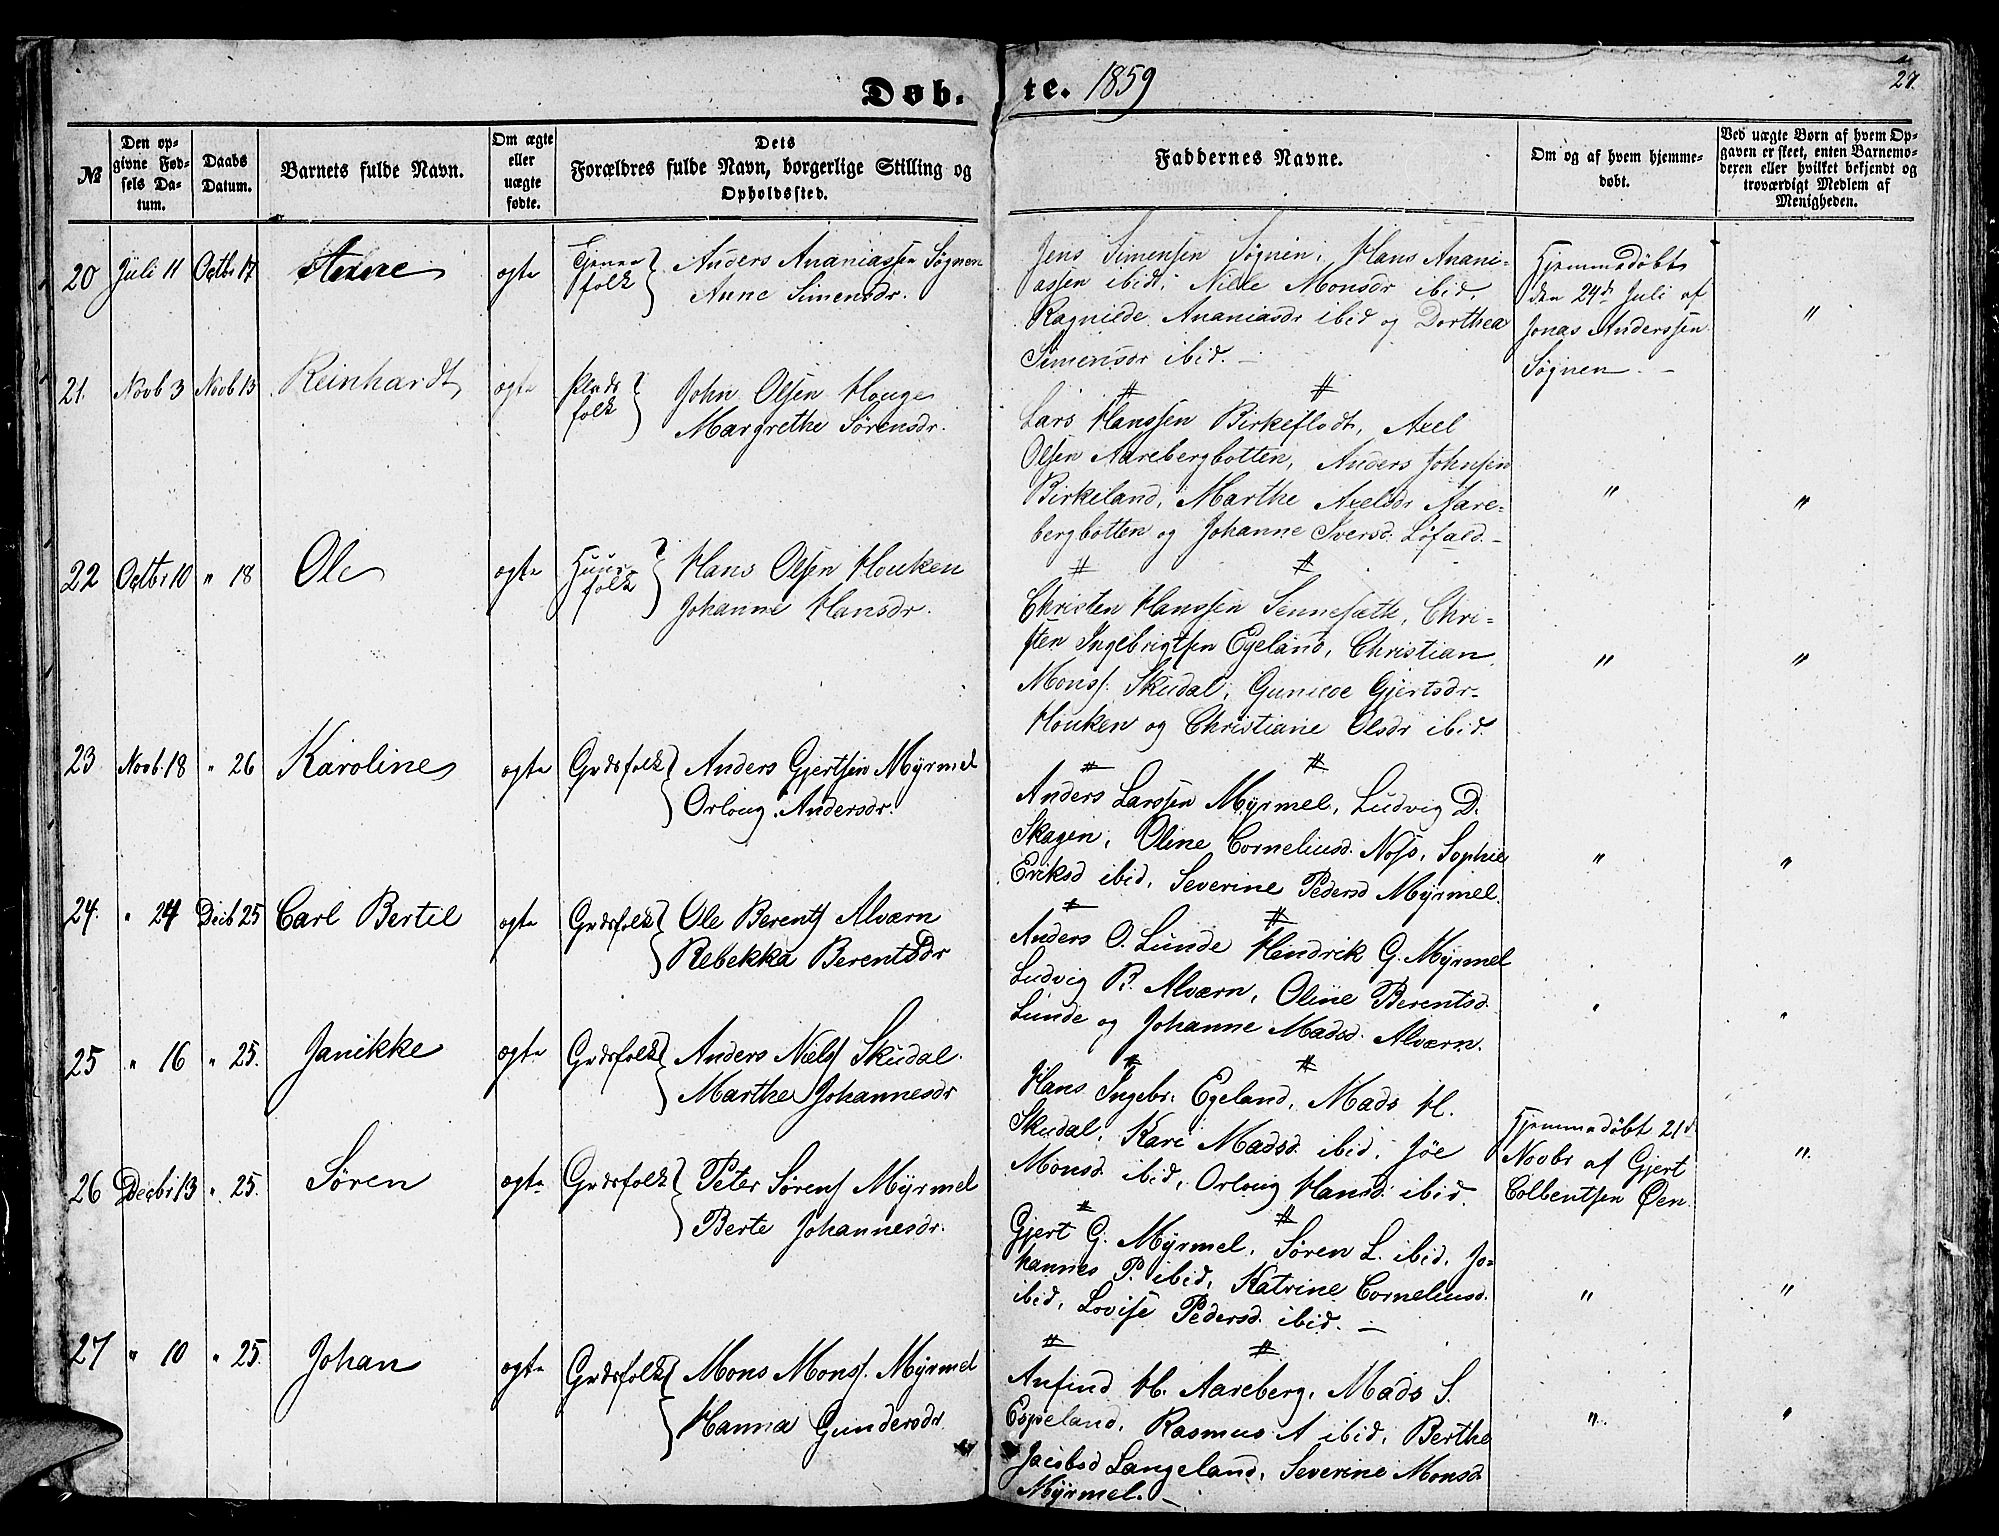 Døb- te. 1859
27.
№
Den op-
givne Fød-
sels Da-
tum.
Daabs
Datum.
Barnets fulde Navn.
Om ægte
eller
uægte
fødte.
Dets
Forældres fulde Navn, borgerlige Stilling og
Opholdssted.
Faddernes Navne.
Om og af hvem hjemme-
døbt.
Ved uægte Børn af hvem Op-
gaven er skeet, enten Barnemo-
deren eller hvilket bekjendt og
troværdigt Medlem af
Menigheden.
20 Juli 11 Octbr 17 ægte
folk
Anders Ananiassen Søgnen
Anne Simensdr.
Jens Simensen Søgnen, Hans Anani-
assen ibid, Nille Monsdr ibid,
Ragnilde Ananiasdr ibid og Dorthea
Simensdr ibid. —
Hjemmedøbt
den 24de Juli af
Jonas Anderssen
Søgnen. —
"
21. Novb 3 Novb 13 Reinhardt ægte Plads
folk
John Olsen Houge
Margrethe Sørensdr.
Lars Hanssen Birkeflodt, Axel
Olsen Aarebergbotten, Anders Johnsen
Birkeland, Marthe Axelsdr Aare-
bergbotten og Johanne Iversd. Løfald. —
" "
22 Octbr 10 " 18 Ole ægte Huus-
folk
Hans Olsen Houken
Johanne Hansdr.
Christen Hanssen Sennesæth, Chri-
sten Ingebrigtsen Egeland, Christian
Monss. Skudal, Gunilde Gjertsdr
Houken og Christiane Olsdr ibid.
" "
23 Novb. 18 " 26 Karoline ægte Grdsfolk
Anders Gjertsen Myrmel
Orloug Andersdr.
Anders Larssen Myrmel, Ludvig D.
Skagen, Oline Corneliusd. Nose, Sophie
Eriksd ibid, Severine Pedersd Myrmel.
" "
24. " 24 Decb 25 Carl Bertil ægte Grdsfolk
Ole Berents Alværn
Rebekka Berentsdr
Anders O. Lunde Hendrik G. Myrmel
Ludvig B. Alværn, Oline Berentsd.
Lunde og Johanne Madsd. Alværn.
" "
25 " 16 " 25. Janikke ægte Grdsfolk
Anders Niels Skudal.
Marthe Johannesdr
Hans Ingebr. Egeland, Mads H.
Skudal, Kari Madsd. ibid, Jøe
Monsd. ibid, Orloug Hansd. ibid.
Hjemmedøbt 21d
Novbr af Gjert
Colbentsen Øen.
"
26 Decbr 13 " 25. Søren ægte Grdsfolk
Peter Sørens Myrmel
Berte Johannesdr.
Gjert G. Myrmel, Søren L. ibid, Jo-
hannes P. ibid, Katrine Corneliusd.
ibid, Lovise Pedersd. ibid. —
" "
27 " 10 " 25. Johan ægte Grdsfolk
Mons Mons. Myrmel
Hanna Gundersdr
Anfind H. Aareberg, Mads S.
Espeland, Rasmus A ibid, Berthe
Jacobsd Langeland, Severine Monsd
Myrmel. —
" "